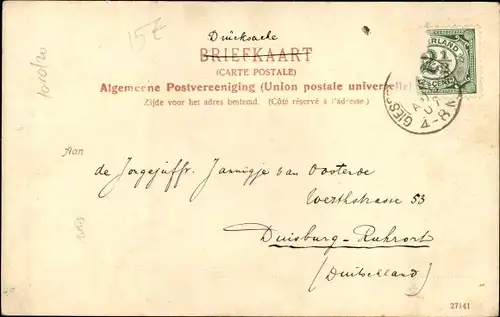 15 E
Drücksache
BRIEFKAART
(CARTE POSTALE)
Algemeene Postvereeniging (Union postale universelle)
Zijde voor het adres bestemd. (Côté réservé à l'adresse.)
ERLAND
2½
CENT
GIES
4-8N
Aan
de Jongejuffr. Jannigje van Oosterde
Werthstrasse 53
Duisburg-Ruhrort
(Duitschland)
27141